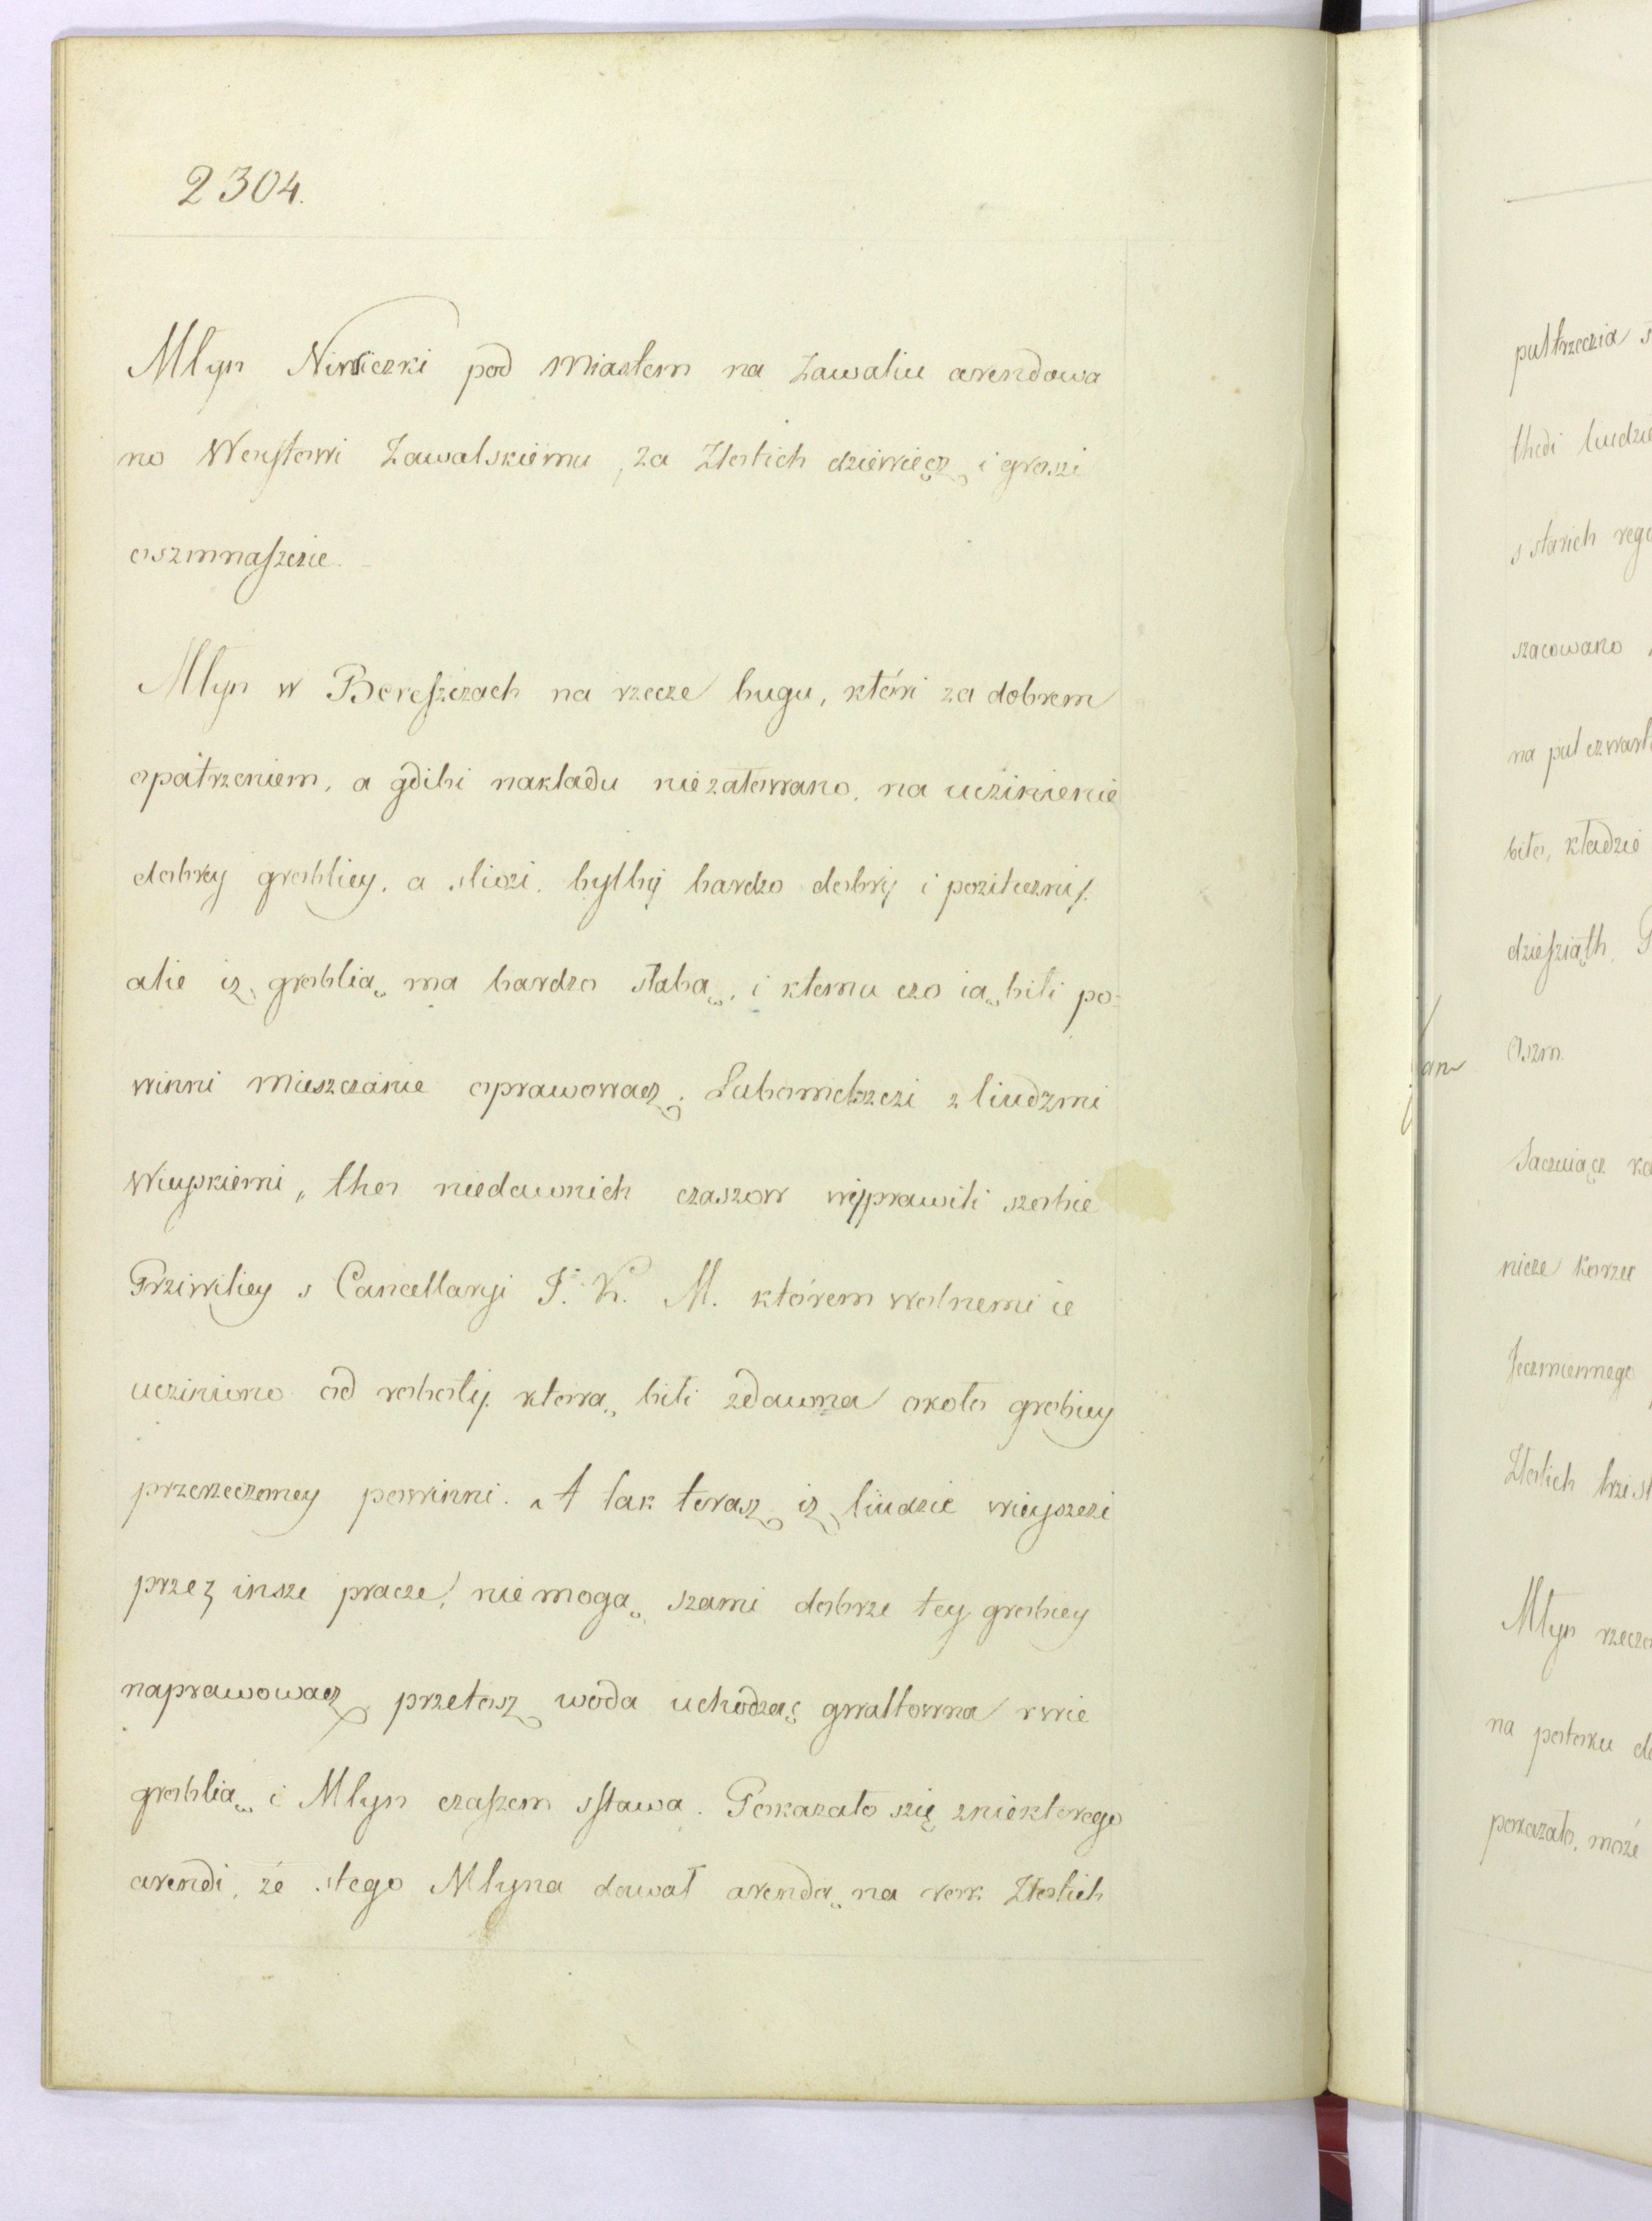 2304.
Młyn Niwiczki pod Miastem na Zawaliu arendowa
no Wenstowi Zawalskiemu, za Złotich dziewięcz i groszi
oszmnaszczie.
Młyn w Bereszczach na rzecze bugu, któri za dobrem
opatrzeniem, a gdibi nakładu nie załowano, na uczinienie
dobrey grobliey, a sliozi, byłby bardzo dobrý i poziteczný,
alie iz groblią ma bardzo słabą, i ktemu czo ią bili po=
winni mieszczanie oprawowacz, Lubomelszczi z liudzmi
Wieyskiemi, tho niedawnich czaszow wyprawili szobie
Prziwiliey s Cancellaryi J. K. M. którem wolnemi ie
ucziniono od roboty, ktorą bili zdawna około grobliey
przerzeczoney powinni. A tak teraz iz liudzie wieyszczi
przez insze pracze, nie mogą szami dobrze tey grobliey
naprawowacz przetosz woda uchodząc gwałtowna rwie
groblią i Młyn czaszem sstawa. Pokazało szię zniektorego
arendi, że stego Młyna dawał arendą na rok Złotich
pułtrzeczia s
thedi liudzie
s starich rege
szacowano
na puł czwart
biło, kładzie
dziesziąth.
Oszm.
nicze korzec
Jeczmiennego
Złotich trzi st
Młyn rzeczo
na potoku do
pokazało, może